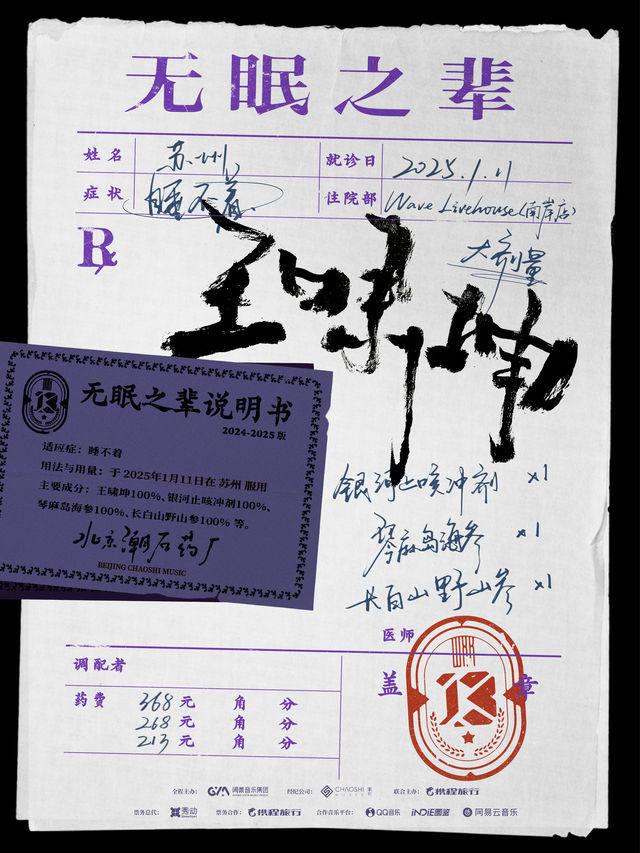 无眠之辈
姓名 苏州 就诊日 2025.1.11
症状 睡不着 住院部 Wave Livehouse(南岸店)
R 大剂量
王啸坤
无眠之辈说明书
2024-2025版
适应症：睡不着
用法与用量：于2025年1月11日在 苏州 服用
主要成分：王啸坤100%、银河止咳冲剂100%、
琴麻岛海参100%、长白山野山参100% 等。
北京潮石药厂
BEIJING CHAOSHI MUSIC
银河止咳冲剂 ×1
琴麻岛海参 ×1
长白山野山参 ×1
医师
盖 章
调配者
药费 368 元 角 分
268 元 角 分
213 元 角 分
全程主办： 闻盛音乐集团 经纪公司： CHAOSHI MUSIC 联合主办： 携程旅行
票务总代： 秀动 票务合作： 携程旅行 合作音乐平台： QQ音乐 iNDiE图鉴 网易云音乐